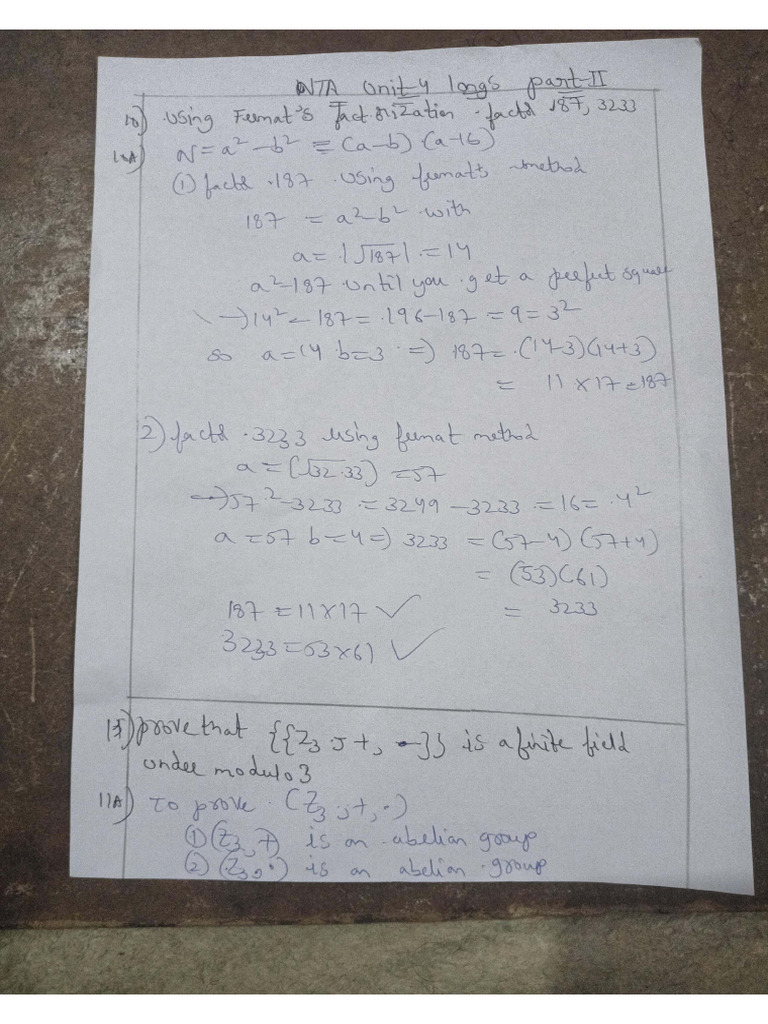 NTA Unit-4 longs part-II
10) Using Fermat's Factorization factor 187, 3233
10A) N = a² - b² = (a-b) (a-1b)
① factor 187 using fermat's method
187 = a²-b² with
a = |√187| = 14
a²-187 until you get a perfect square
→ 14² - 187 = 196-187 = 9 = 3²
so a=14 b=3 => 187 = (14-3)(14+3)
= 11 × 17 = 187
2) factor 3233 using fermat method
a = (√3233) = 57
→ 57² - 3233 = 3249 - 3233 = 16 = 4²
a = 57 b = 4 => 3233 = (57-4) (57+4)
= (53)(61)
= 3233
187 = 11 × 17 ✓
3233 = 53 × 61 ✓
prove that {{Z₃, +, ·}} is a finite field
under modulo 3
11A) To prove (Z₃, +, ·)
① (Z₃, +) is an abelian group
② (Z₃, ·) is an abelian group